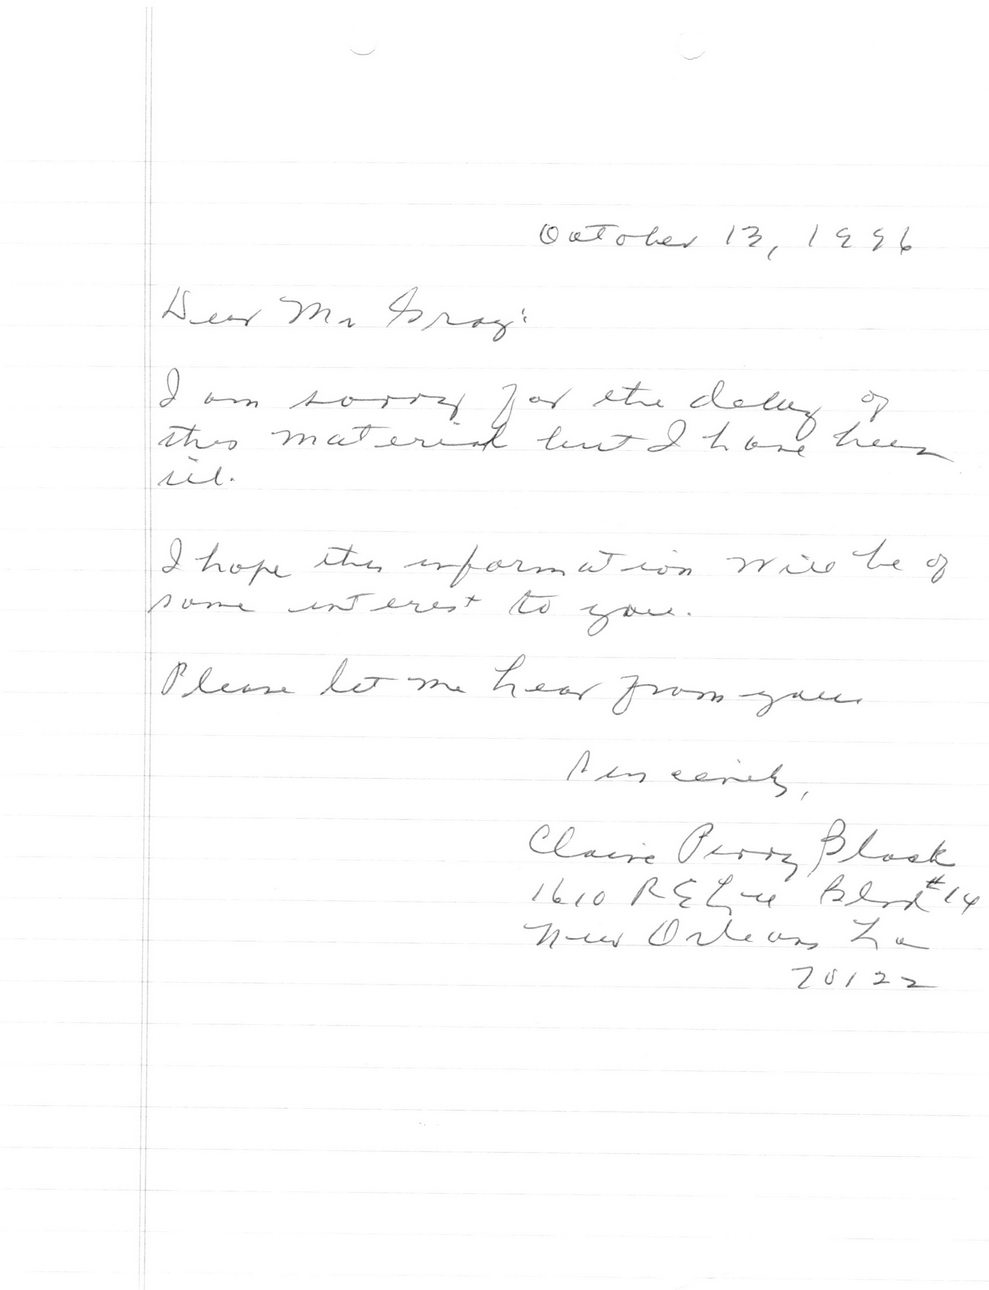 October 13, 1996
Dear Mr Gray:
I am sorry for the delay of
this material but I have been
ill.
I hope this information will be of
some interest to you.
Please let me hear from you.
Sincerely,
Claire Perry Black
1610 R E Lee Blvd #14
New Orleans La
70122